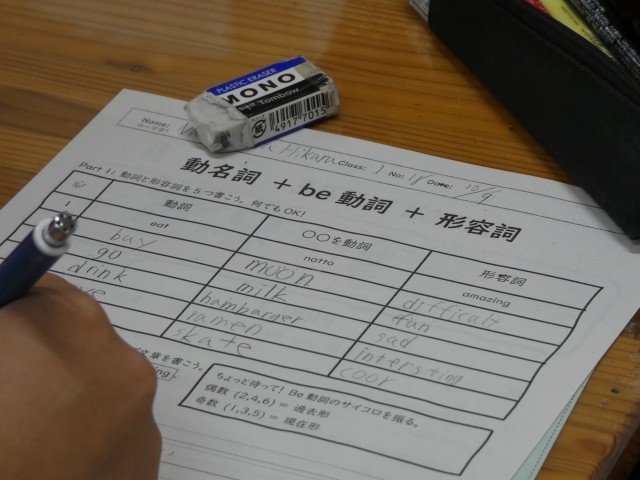 PLASTIC ERASER
MONO
Tombow
4917 7015
Name:
Hikaru Class: 1 No: 18 Date: 10/9
動名詞 + be 動詞 + 形容詞
Part 1: 動詞と形容詞を5つ書こう。何でもOK!
動詞 〇〇を動詞 形容詞
eat natto amazing
buy moon difficult
go milk fun
drink hambaruer sad
ramen intersting
skate coor
文章を書こう。
ちょっと待って! Be 動詞のサイコロを振る。
偶数 (2,4,6) = 過去形
奇数 (1,3,5) = 現在形